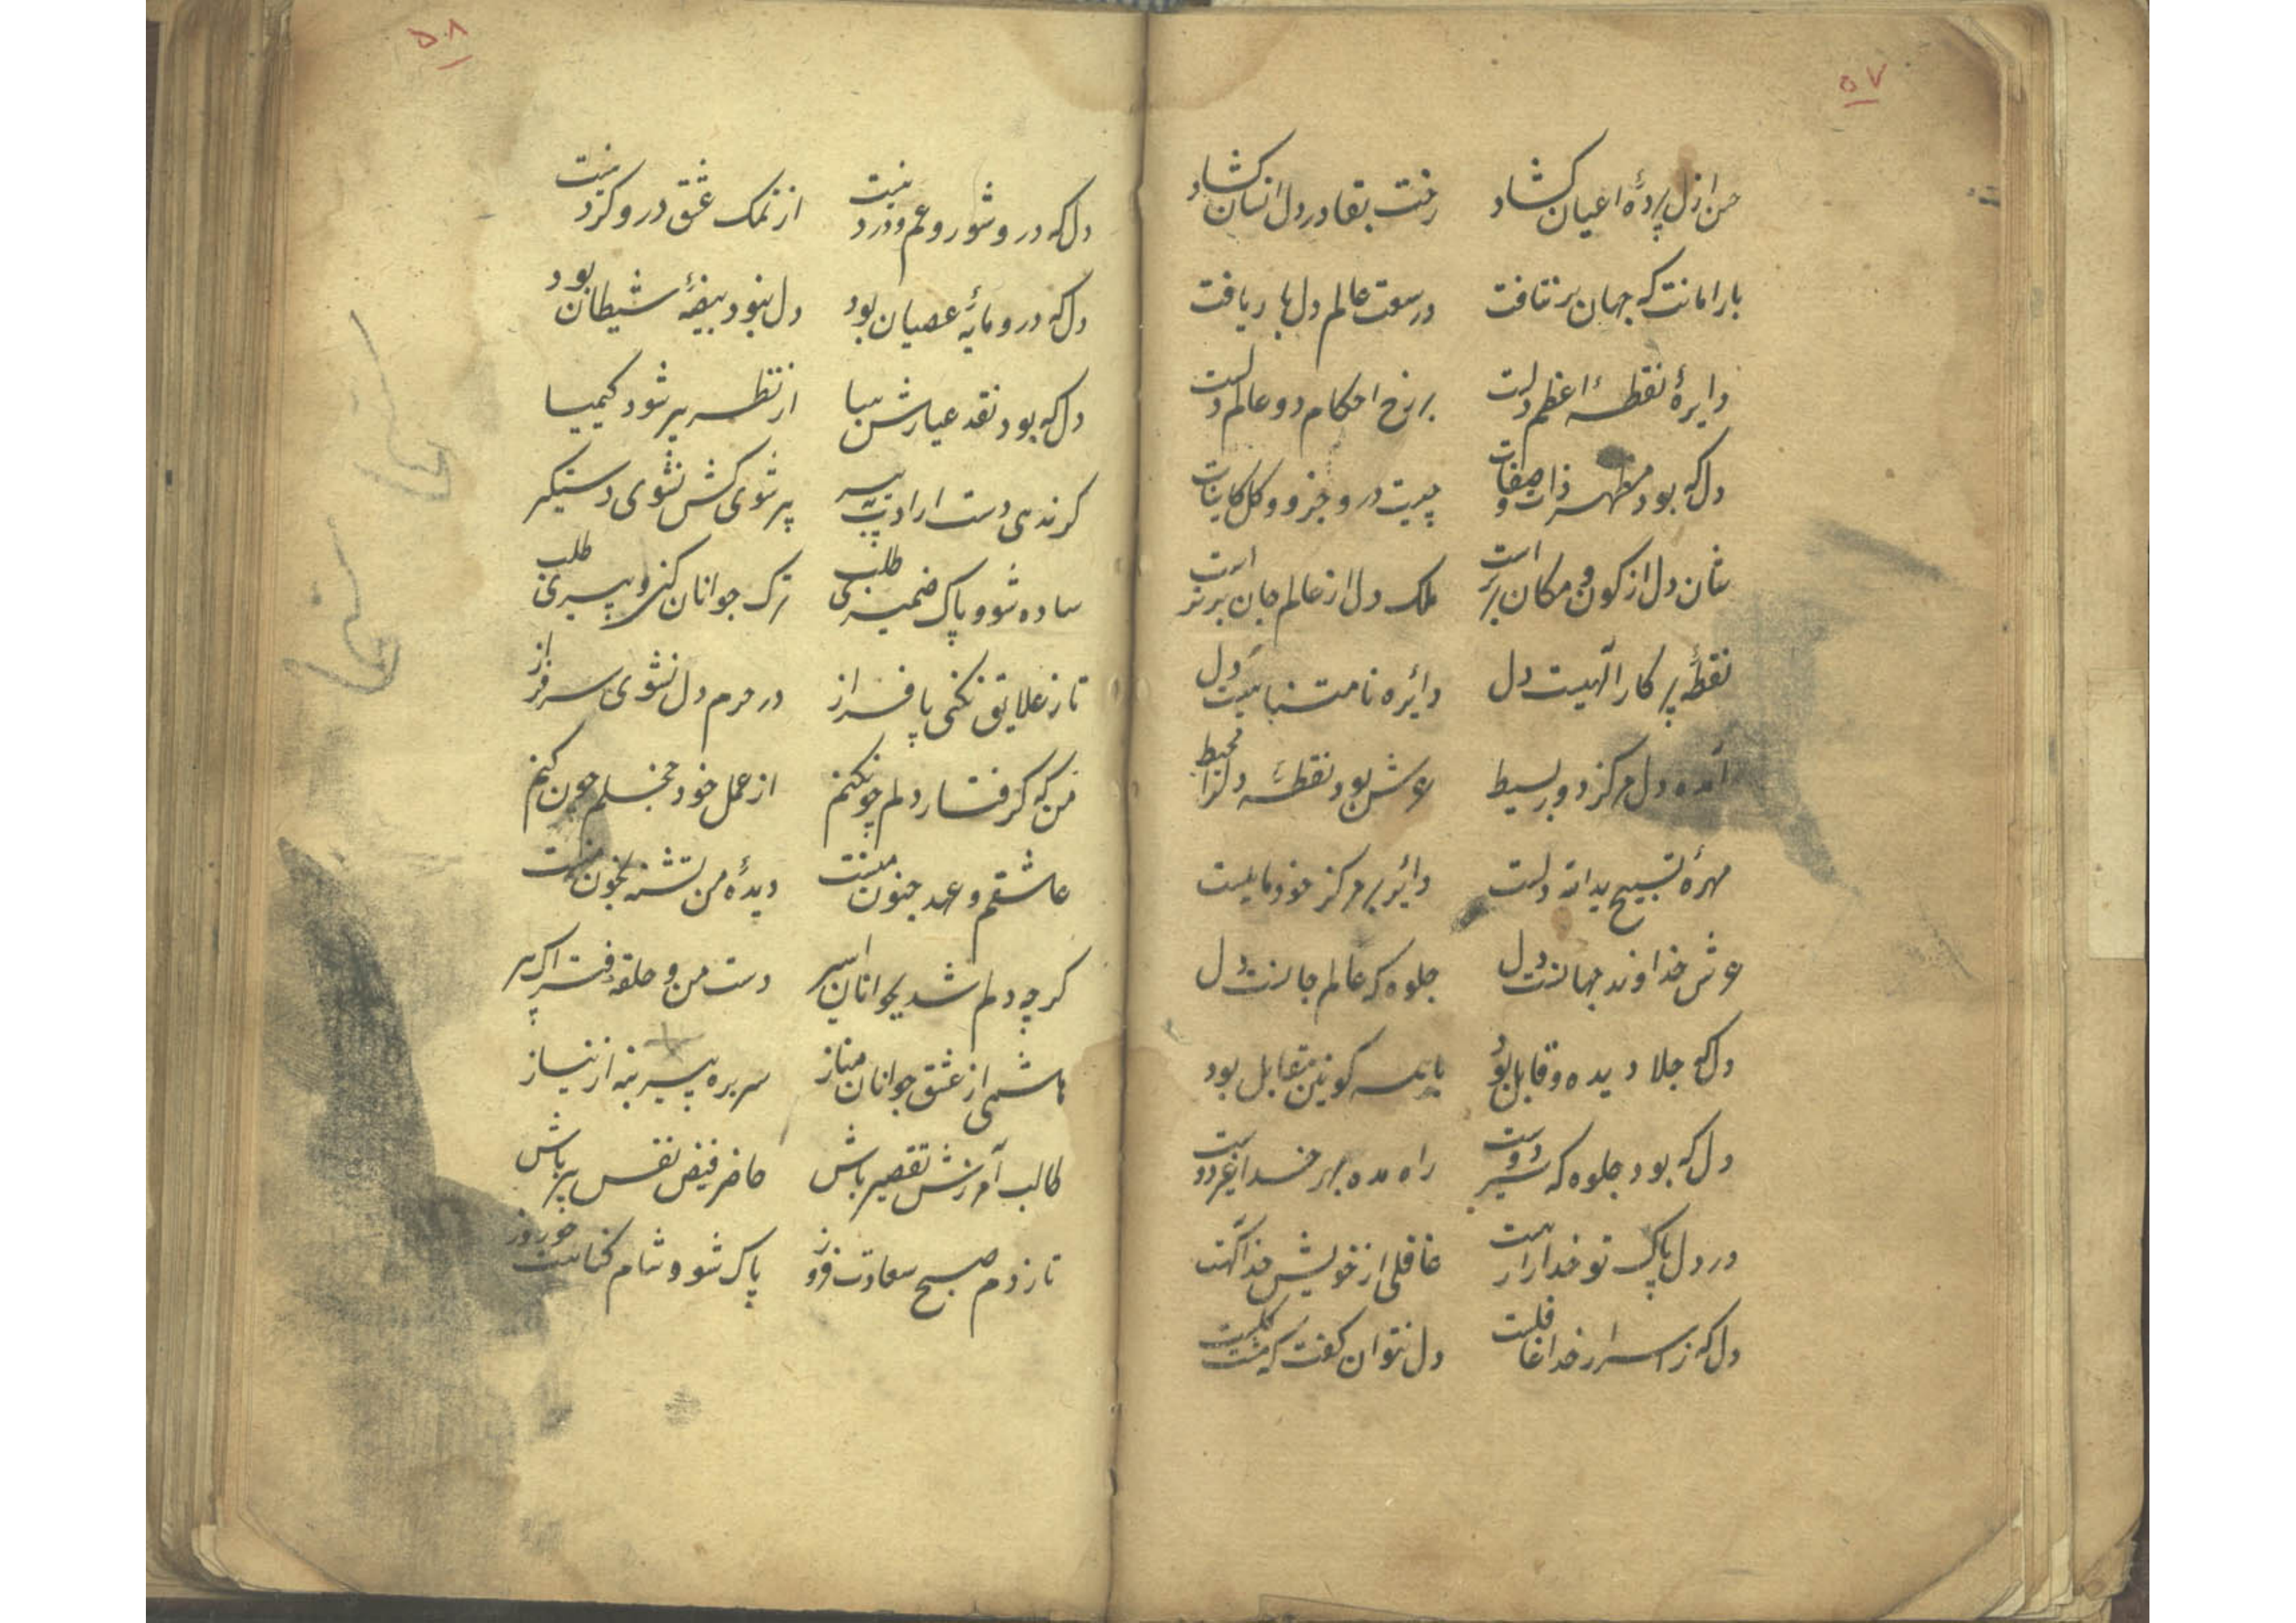 ۵۷
حسن ازل پردهٔ اعیان کشاد رخت بقا در دل انسان کشاد
بار امانت که جهان بر نتافت در سعت عالم دلها بیافت
دایرهٔ نقطهٔ اعظم دلست برزخ احکام دو عالم دلست
دل که بود مظهر ذات و صفات چیست درو جزو و کل کاینات
شان دل از کون و مکان برتر است ملک دل از عالم جان برتر است
نقطهٔ پرکار الهیست دل دائره نامتناهیست دل
آمده دل مرکز دور بسیط عرش بود نقطهٔ دل را محیط
مهرهٔ تسبیح یدالله دلست دائر بر مرکز خود
عرش خداوند جهانست دل جلوه که عالم جانست دل
دل که جلا دیده و قابل بود با همه کونین مقابل بود
دل که بود جلوه که سر دوست راه مده بهر خدا غیر دوست
در دل پاک تو خدا را رهست غافلی از خویش خدا آگهست
دل که ز اسرار خدا غافلست دل نتوان گفت که مشت گلست
۵۸
دل که درو شور و غم و درد نیست از نمک عشق درو کرد نیست
دل که درو مایهٔ عصیان بود دل نبود بیضهٔ شیطان بود
دل که بود نقد عیارش بیا از نظر پیر شود کیمیا
کر ندهی دست ارادت به پیر پیر شوی کش نشوی دستگیر
ساده شو و پاک ضمیری طلب ترک جوانان کن و پیری طلب
تا ز علایق نکنی پا فراز در حرم دل نشوی سرفراز
من که گرفتار دلم چون کنم از عمل خود خجلم چون کنم
عاشقم و عهد جنون منست دیدهٔ من تشنه بخون منست
کرچه دلم شد بجوانان اسیر دست من و حلقه فتراک پیر
هاشمی از عشق جوانان مناز سر بره پیر بنه از نیاز
طالب آمرزش تقصیر باش حاضر فیض نفس پیر باش
تا ز دم صبح سعادت فروز پاک شود شام